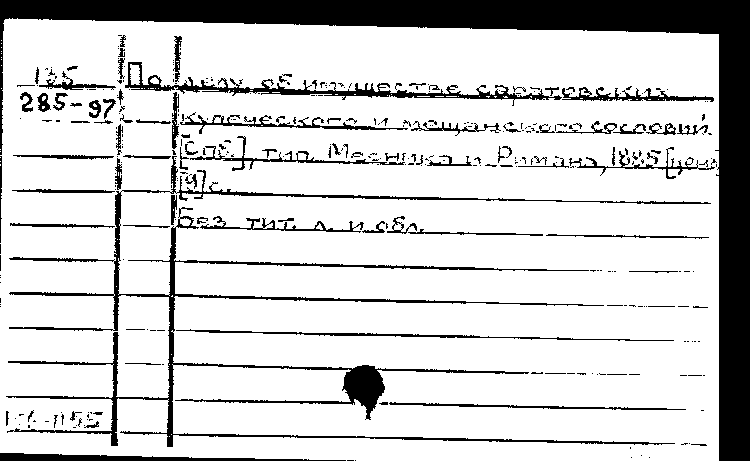 135 По делу об имуществе саратовских
285-97 купеческого и мещанского сословий
[СПб.], тип. Месника и Римана, 1885 [ценз
[9] с.
Без тит. л. и обл.